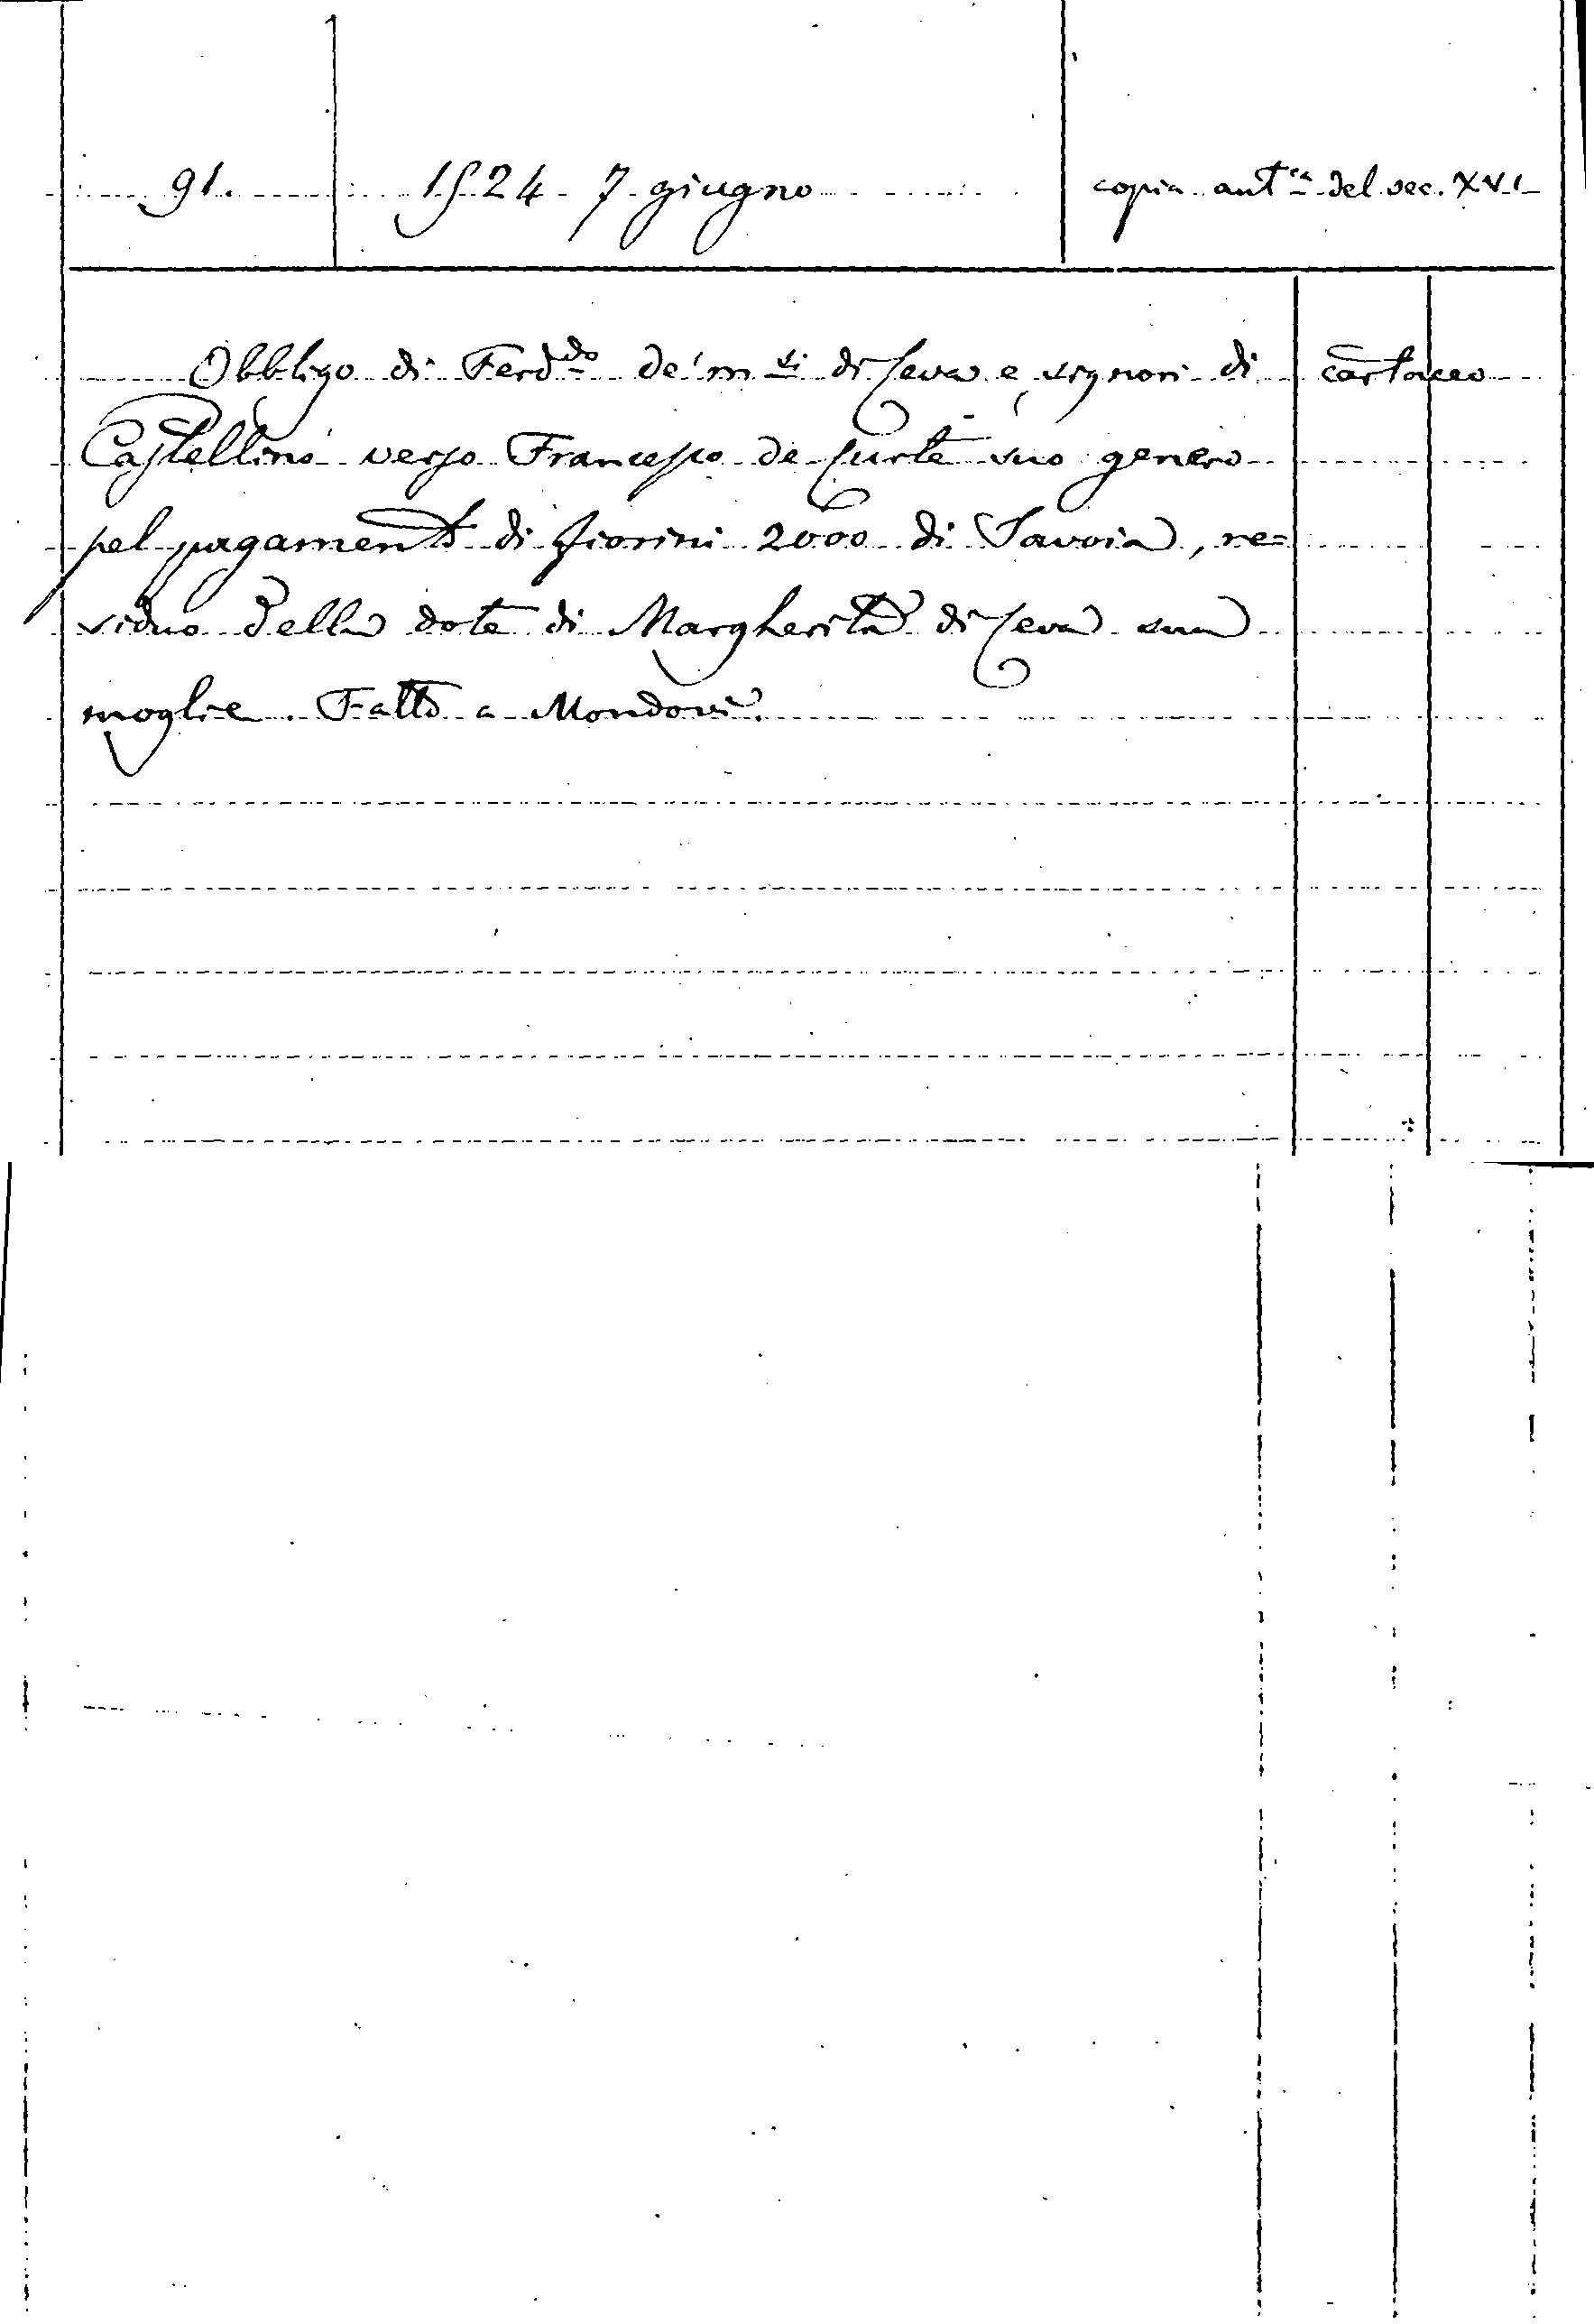 91. 1524 7 giugno copia aut.ca del sec. XVI
Obbligo di Ferd.do de' m.si di Ceva e signori di cartaceo
Castellino verso Francesco de Curte suo genero
pel pagamento di fiorini 2000 di Savoia, re=
siduo della dote di Margherita di Ceva sua
moglie. Fatto a Mondovì.